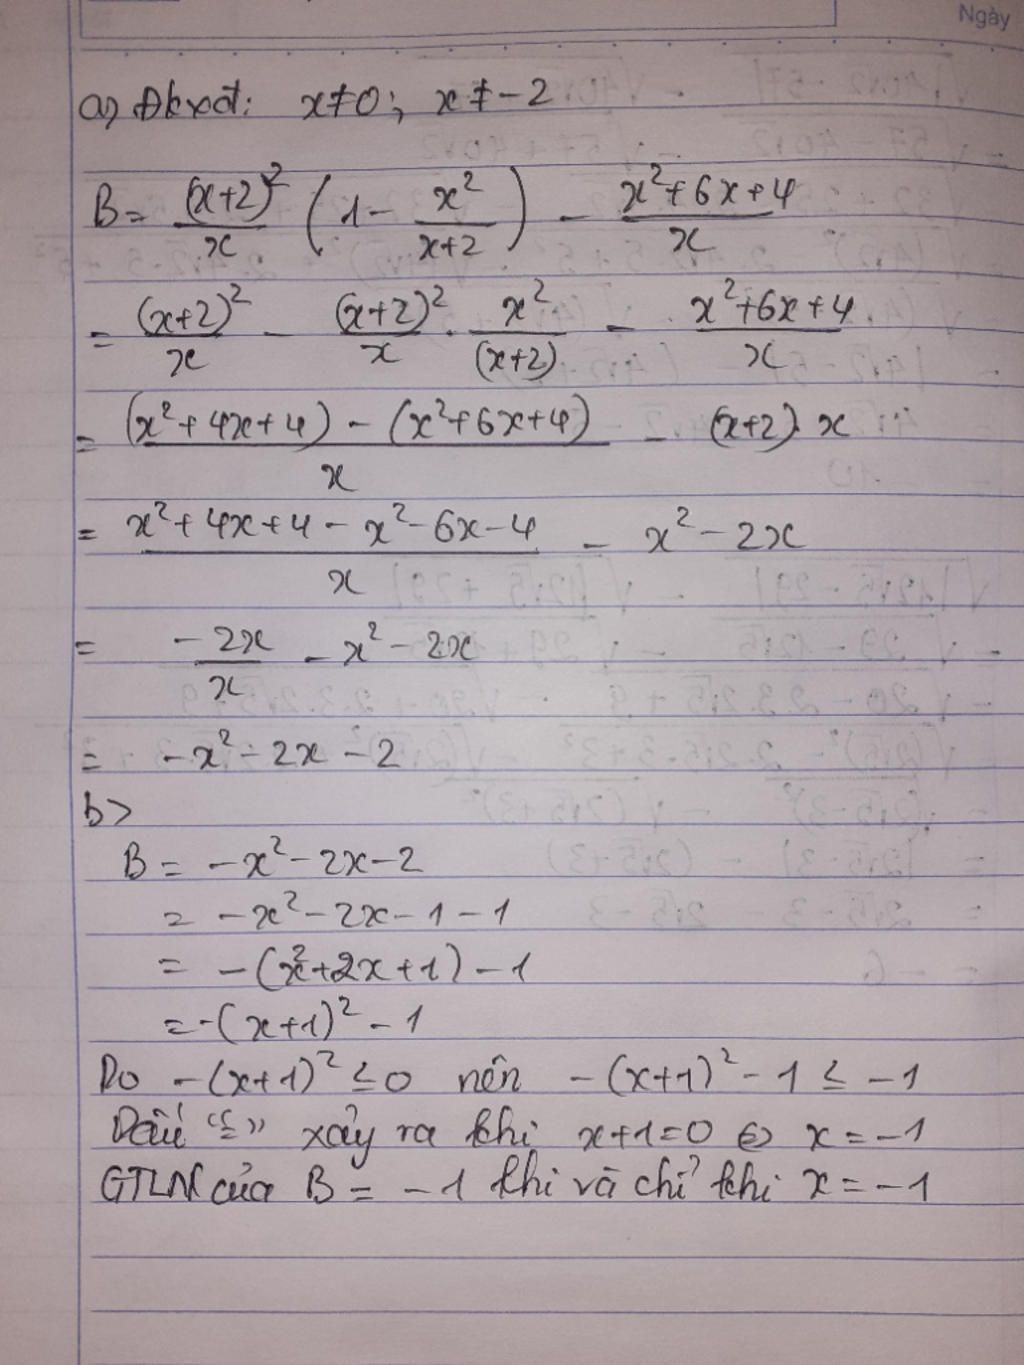 Ngày
a) Đkxđ: x≠0; x≠-2
B= (x+2)²/x (1- x²/(x+2)) - (x²+6x+4)/x
= (x+2)²/x - (x+2)²/x . x²/(x+2) - (x²+6x+4)/x
= ((x²+4x+4)-(x²+6x+4))/x - (x+2).x
= (x²+4x+4-x²-6x-4)/x - x²-2x
= -2x/x - x²-2x
= -x²-2x-2
b>
B= -x²-2x-2
= -x²-2x-1-1
= -(x²+2x+1)-1
=-(x+1)²-1
Do -(x+1)²≤0 nên -(x+1)²-1≤-1
Dấu "=" xảy ra khi x+1=0 ⇔ x=-1
GTLN của B= -1 khi và chỉ khi x=-1